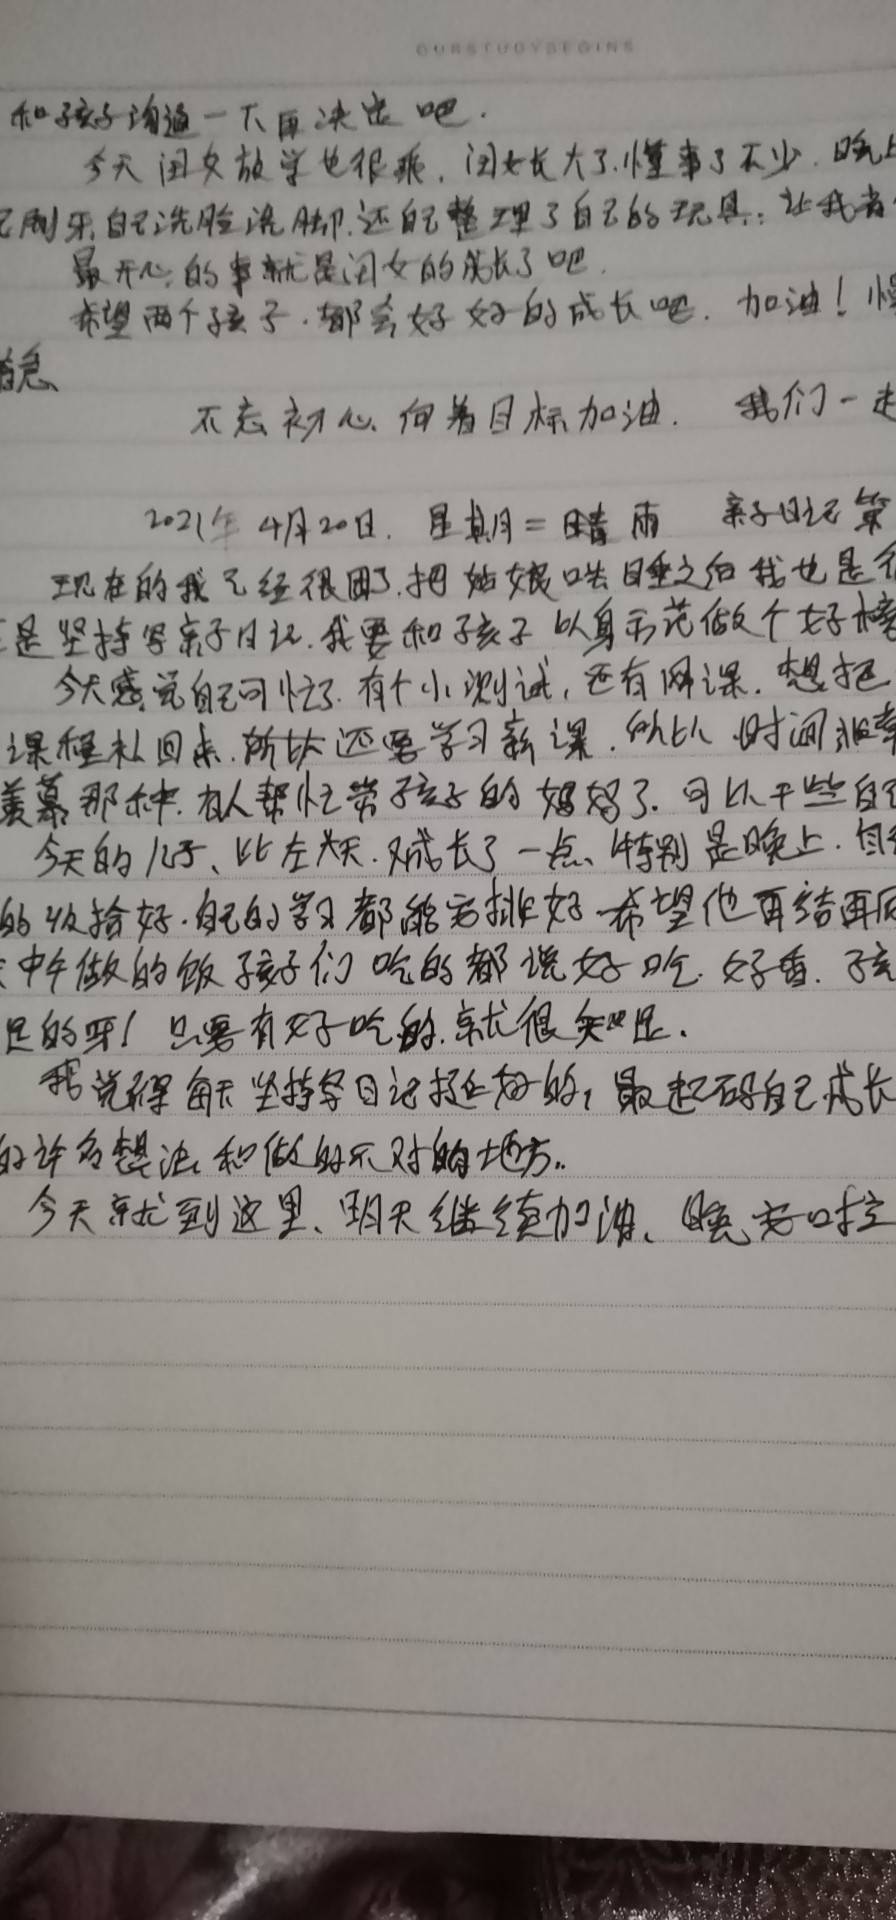 OURSTUDYBEGINS
和孩子沟通一下再决定吧.
今天闺女放学也很乖.闺女长大了.懂事了不少.晚上
己刷牙.自己洗脸洗脚.还自己整理了自己的玩具:让我省
最开心的事就是闺女的成长了吧.
希望两个孩子.都会好好的成长吧.加油!慢
着急、
不忘初心、向着目标加油.我们一走
2021年4月20日.星期二 晴 雨 亲子日记第
现在的我已经很困了.把姑娘哄睡之后我也是
是坚持写亲子日记.我要和孩子以身示范做个好榜
今天感觉自己可忙了.有个小测试,还有网课.想把
课程补回来.所以还要学习新课.所以时间非常
羡慕那种.有人帮忙带孩子的妈妈了.可以干些自己
今天的儿子、比左天.又成长了一点、特别是晚上.自
的收拾好.自己的学习都能安排好.希望他再接再厉
中午做的饭孩子们吃的都说好吃.好香.孩
足的呀!只要有好吃的.就很知足.
我觉得每天坚持写日记挺好的,最起码自己成长
的许多想法和做的不对的地方..
今天就到这里、明天继续加油、晚安